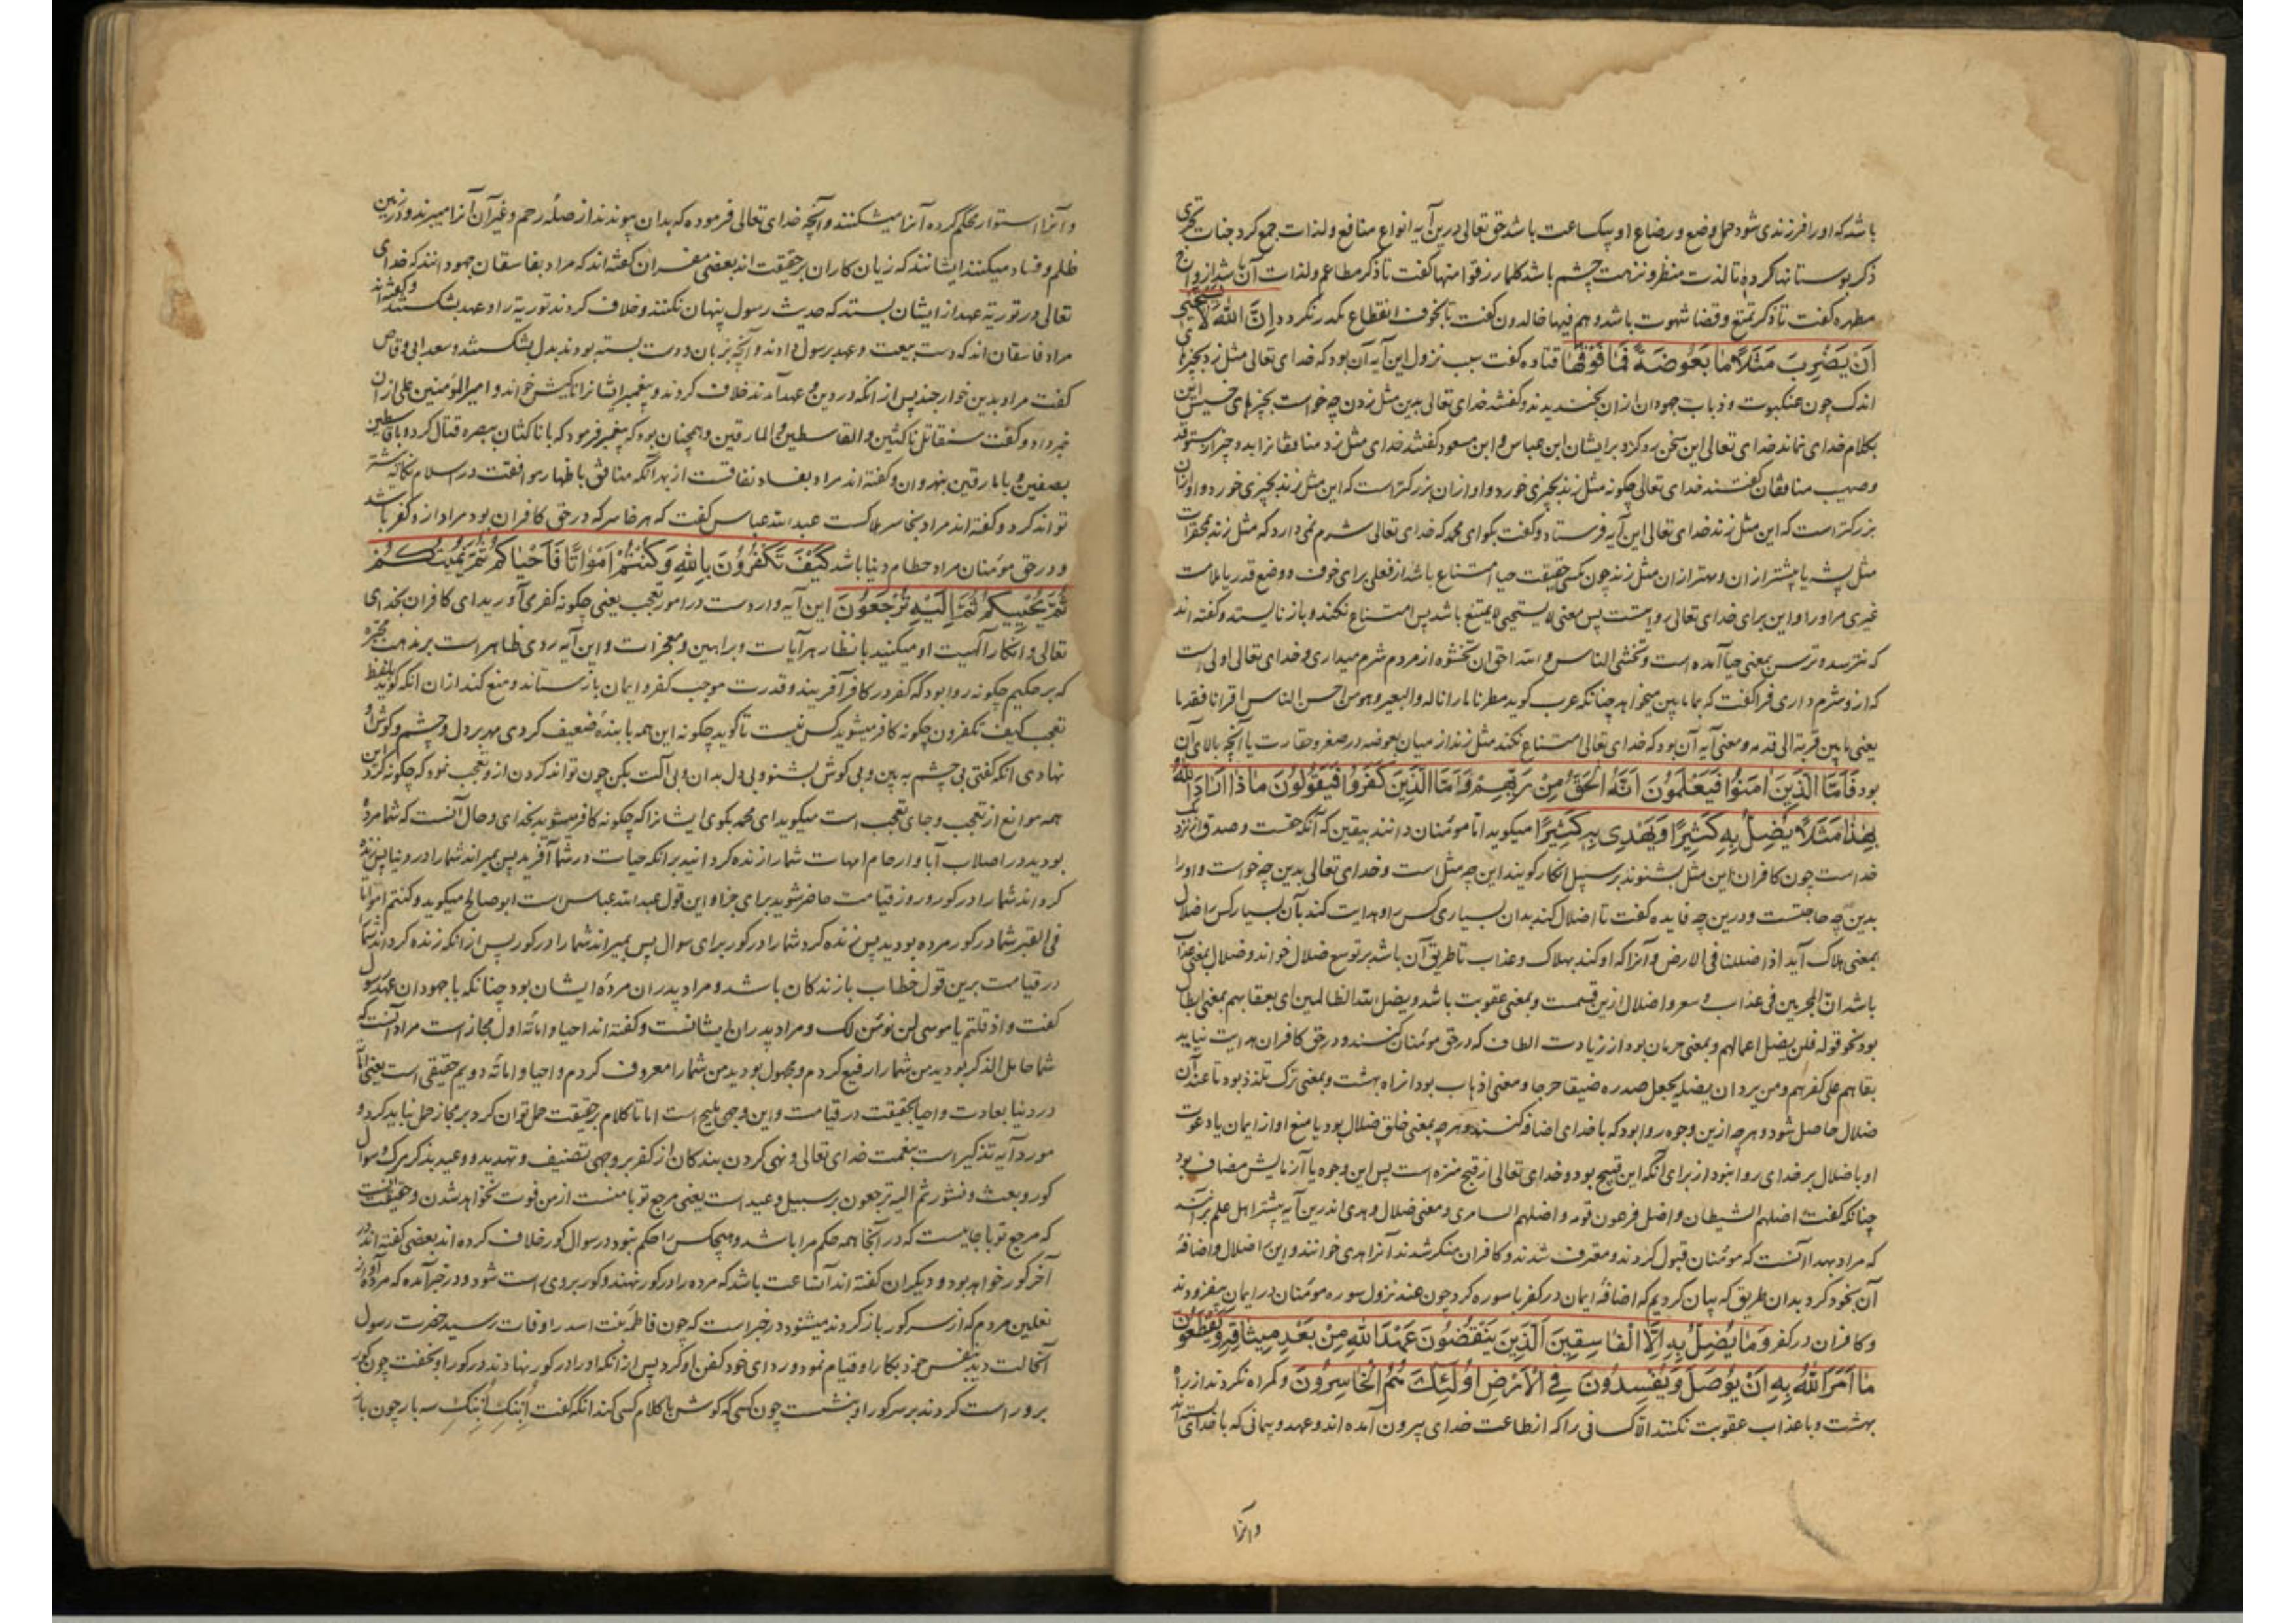 باشد که او را فرزندی شود حمل و وضع و رضاع او بیکساعت باشد حق تعالی درین آیه انواع منافع و لذات جمع کرد جنات تجری
ذکر بوستانها کرده تا لذت منظر و نزهت چشم باشد کلما رزقوا منها گفت تا ذکر مطاعم و لذات آن باشد ازواج
مطهره گفت تا ذکر تمتع و قضا شهوت باشد و هم فیها خالدون گفت تا بخوف انقطاع مکدر نکردد اِنَّ اللّٰهَ لَا یَسْتَحْیٖی
اَنْ یَضْرِبَ مَثَلًا مٰا بَعُوضَةً فَمٰا فَوْقَهٰا قتاده گفت سبب نزول این آیه آن بود که خدای تعالی مثل زد بچیزهای
اندک چون عنکبوت و ذباب جهودان ازان بخندیدند و گفتند خدای تعالی بدین مثل زدن چه خواست بچیزهای خسیس این
بکلام خدای نماند خدای تعالی این سخن رد کرد بر ایشان ابن عباس و ابن مسعود گفتند خدای مثل زد منافقانرا بدو چیز استوقد
و صیب منافقان گفتند خدای تعالی چگونه مثل زند بچیزی خورد و او ازان بزرکتر است که این مثل زند بچیزی خورد و او ازان
بزرکتر است که این مثل زند خدای تعالی این آیه فرستاد و گفت بگوای محمد که خدای تعالی شرم نمی دارد که مثل زند بمحقرات
مثل پشه یا پیشتر ازان و مهتر ازان مثل زند چون کسی حقیقت حیا امتناع باشد از فعلی برای خوف و وضع قدر یا ملامت
غیری مر او را و این برای خدای تعالی روا نیست پس معنی لا یستحیی لا یمتنع باشد پس امتناع نکند و باز نایستد و گفته اند
که نترسد و ترس بمعنی حیا آمده است و تخشی الناس و الله احق ان تخشوه از مردم شرم میداری و خدای تعالی اولی است
که ازو شرم داری فرا گفت که بما ما بین میخواهد چنانکه عرب گوید مطرنا ما زبالة و الثعلبیة و هو من احسن الناس قرنا فقدما
یعنی ما بین قرنه الی قدمه و معنی آیه آن بود که خدای تعالی امتناع نکند مثل زند از میان بعوضه در صغر و حقارت یا آنچه بالای آن
بود فَاَمَّا الَّذٖینَ اٰمَنُوا فَیَعْلَمُونَ اَنَّهُ الْحَقُّ مِنْ رَبِّهِمْ وَ اَمَّا الَّذٖینَ کَفَرُوا فَیَقُولُونَ مٰا ذٰا اَرٰادَ اللّٰهُ
بِهٰذٰا مَثَلًا یُضِلُّ بِهٖ کَثٖیرًا وَ یَهْدٖی بِهٖ کَثٖیرًا میگوید اما مؤمنان دانند بیقین که آنکه حقست و صدق از نزدیک
خداست چون کافران این مثل بشنوند بر سبیل انکار گویند این چه مثل است و خدای تعالی بدین چه خواست و او را
بدین چه حاجتست و درین چه فایده گفت تا اضلال کند بدان بسیاری کس را و هدایت کند بآن بسیار کس اضلال
بمعنی هلاک آید اذا ضللنا فی الارض و آنرا که او کند بهلاک و عذاب تا طریق آن باشد بر توسع ضلال خواند و ضلال بمعنی عذاب
باشد ان المجرمین فی ضلال و سعر و اضلال ازین قسمت و بمعنی عقوبت باشد و یضل الله الظالمین ای یعقابهم بمعنی ابطال
بود نحو قوله فلن یضل اعمالهم و بمعنی حرمان بود از زیادت الطاف که در حق مؤمنان کنند و در حق کافران هدایت نیاید
بقاهم علی کفرهم و من یرد ان یضله یجعل صدره ضیقا حرجا و معنی اذهاب بود از راه بهشت و بمعنی ترک تلذذ بود تا عند آن
ضلال حاصل شود و هر چه ازین وجوه روا بود که با خدای اضافه کنند و هر چه بمعنی خلق ضلال بود یا منع او از ایمان یا دعوت
او باضلال بر خدای روا نبود از برای آنکه این قبیح بود و خدای تعالی از قبیح منزه است پس این وجوه یا آزمایش مضاف بود
چنانکه گفت اضلهم الشیطان و اضل فرعون قومه و اضلهم السامری و معنی ضلال و هدی اندرین آیه پیشتر اهل علم بر آنند
که مراد بهدی آنست که مؤمنان قبول کردند و معترف شدند و کافران منکر شدند آنرا هدی خوانند و این اضلال و اضافهٔ
آن بخود کرد بدان طریق که بیان کردیم که اضافهٔ ایمان در کفر با سوره کرد چون عند نزول سوره مؤمنان در ایمان بیفزودند
و کافران در کفر وَ مٰا یُضِلُّ بِهٖ اِلَّا الْفٰاسِقٖینَ اَلَّذٖینَ یَنْقُضُونَ عَهْدَ اللّٰهِ مِنْ بَعْدِ مٖیثٰاقِهٖ وَ یَقْطَعُونَ
مٰا اَمَرَ اللّٰهُ بِهٖ اَنْ یُوصَلَ وَ یُفْسِدُونَ فِی الْاَرْضِ اُولٰئِکَ هُمُ الْخٰاسِرُونَ و گمراه نکردند از راه
بهشت و با عذاب عقوبت نکنند الا کسانی را که از طاعت خدای بیرون آمده اند و عهد و پیمانی که با خدای بسته اند
و آنرا
و آنرا استوار محکم کرده آنرا میشکنند و آنچه خدای تعالی فرموده که بدان پیوندند از صلهٔ رحم و غیر آن آنرا میبرند و در زمین
ظلم و فساد میکنند ایشانند که زیان کاران بر حقیقت اند بعضی مفسران گفته اند که مراد بفاسقان جهودانند که خدای
تعالی در توریة عهد از ایشان بستد که حدیث رسول پنهان نکنند و خلاف کردند توریة را و عهد بشکستند و گفته اند
مراد فاسقان اند که دست بیعت و عهد برسول دادند و آنچه بزبان و دست بسته بودند بدل بشکستند و سعد ابی وقاص
گفت مراد بدین خوارجند پس از انکه در دین و عهد آمدند خلاف کردند و پیغمبر ایشانرا ناکثین خواند و امیر المؤمنین علی ازان
خبر داد و گفت ستقاتل ناکثین و القاسطین و المارقین و همچنان بود که پیغمبر فرمود که با ناکثان ببصره قتال کرد و با قاسطین
بصفین و با مارقین بنهروان و گفته اند مراد بفساد نفاقست از بهر آنکه منافق باظهار موافقت در اسلام نکایه بیشتر
تواند کرد و گفته اند مراد بخاسر هلاکست عبد الله عباس گفت که هر خاسر که در حق کافران بود مراد ازو کفر باشد
و در حق مؤمنان مراد حطام دنیا باشد کَیْفَ تَکْفُرُونَ بِاللّٰهِ وَ کُنْتُمْ اَمْوٰاتًا فَاَحْیٰاکُمْ ثُمَّ یُمٖیتُکُمْ
ثُمَّ یُحْیٖیکُمْ ثُمَّ اِلَیْهِ تُرْجَعُونَ این آیه واردست در امور تعجب یعنی چگونه کفر می آورید ای کافران بخدای
تعالی و انکار آلهیت او میکنید با نظاهر آیات و براهین و معجزات و این آیه ردی ظاهر است بر مذهب مجبره
که بر حکیم چگونه روا بود که کفر در کافر آفریند و قدرت موجب کفر و ایمان باز ستاند و منع کند ازان انکه گوید بلفظ
تعجب کیف تکفرون چگونه کافر میشوید کس نیست تا گوید چگونه این همه با بندهٔ ضعیف کردی مهر بر دل و چشم و گوش او
نهادی انکه گفتی بی چشم به بین و بی گوش بشنو و بی دل بدان و بی آلت بکن چون تواند کردن ازو تعجب نمود که چگونه کرد این
همه موانع از تعجب و جای تعجب است میگوید ای محمد بگوی ایشانرا که چگونه کافر میشوید بخدای و حال آنست که شما مرده
بودید در اصلاب آبا و ارحام امهات شما را زنده گردانید بر انکه حیات در شما آفرید پس بمیراند شما را در دنیا پس زنده
گرداند شما را در گور و روز قیامت حاضر شوید برای جزا و این قول عبد الله عباس است ابو صالح میگوید و کنتم امواتا
فی القبر شما در گور مرده بودید پس زنده کرد شما را در گور برای سوال پس بمیراند شما را در گور پس از انکه زنده کرد اند شما را
در قیامت برین قول خطاب با زندگان باشد و مراد پدران مردهٔ ایشان بود چنانکه با جهودان عهد رسول
گفت و اذ قلتم یا موسی لن نؤمن لک و مراد پدران ایشانست و گفته اند احیا و اماتهٔ اول مجاز است مراد آنست که
شما خامل الذکر بودید من شما را رفیع کردم و مجهول بودید من شما را معروف کردم و احیا و اماتهٔ دویم حقیقی است یعنی اماته
در دنیا بعادت و احیا بحقیقت در قیامت و این وجهی ملیح است اما تا کلام بر حقیقت حمل توان کرد بر مجاز حمل نباید کرد و
مورد آیه تذکیر است بنعمت خدای تعالی و نهی کردن بندگان از کفر بر وجهی تصنیف و تهدید و وعید بذکر مرگ و سوال
گور و بعث و نشور ثم الیه ترجعون بر سبیل وعید است یعنی مرجع تو با منست از من فوت نخواهد شدن و حقیقت آنست
که مرجع تو با جاییست که در آنجا همه حکم مرا باشد و هیچکس را حکم نبود در سوال گور خلاف کرده اند بعضی گفته اند در
آخر گور خواهد بود و دیگران گفته اند آنساعت باشد که مرده را در گور نهند و گور بر وی راست شود و در خبر آمده که مرده آواز
نعلین مردم که از سر گور باز گردند میشنود در خبر است که چون فاطمه بنت اسد را وفات رسید حضرت رسول
آنحالت دید بنفس خود بکار او قیام نمود و ردای خود کفن او کرد پس از انکه او را در گور نهادند در گور او بخفت چون گور
برو راست کردند بر سر گور او بنشست چون کسی که گوش با کلام کسی کند انگه گفت اِبْنُکِ اِبْنُکِ سه بار چون باز